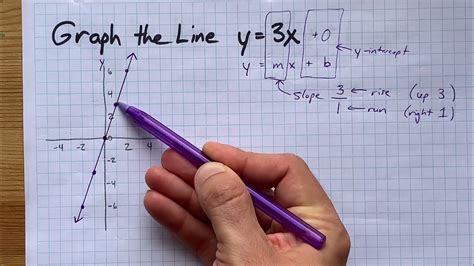 Graph the Line y=3x +0
y-intercept
y = mx + b
slope 3/1 rise (up 3)
run (right 1)
y
6
4
2
0
-4 -2 2 4
-4
-6